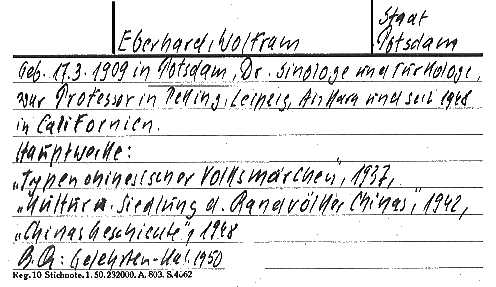 Staat
Eberhard, Wolfram
Potsdam
Geb. 17.3.1909 in Potsdam, Dr. Sinologe und Turkologe,
war Professor in Peking, Leipzig, Ankara und seit 1948
in Californien.
Hauptwerke:
„Typen chinesischer Volksmärchen", 1937,
„Kultur u. Siedlung d. Randvölker Chinas", 1942,
„Chinas Geschichte", 1948
Gelehrten-Kal. 1950
Reg. 10 Stichnote. 1. 50. 232000. A. 803. S. 4662